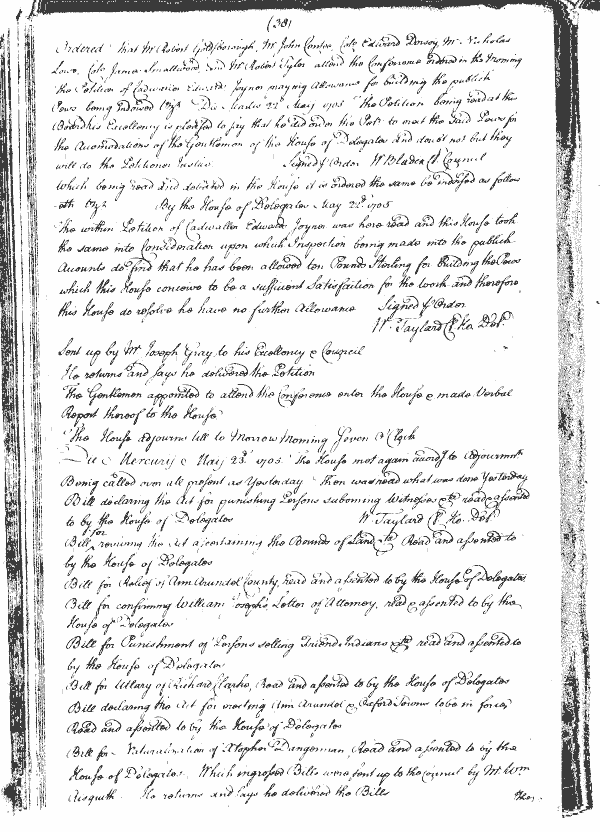 (38)
Ordered that Mr Robert Goldsborough, Mr John Contee, Coll Edward Dorsey, Mr Nicholas
Lowe, Coll James Smallwood and Mr Robert Tyler attend the Conference ordered in the morning
The Petition of Cadwalder Edwards Joyner praying Allowance for building the publick
Pews being indorsed Die Martis 22d May 1705 The Petition being read at this
Board his Excellency is pleased to say that he did order the Petr to erect the said Pews for
the Accomodations of the Gentlemen of the House of Delegates and doubts not but they
will do the Petitioner Justice Signed p Order W Bladen Cl Council
Which being read and debated in the House it is ordered the same be indorsed as follow
eth By the House of Delegates May 22d 1705
The within Petition of Cadwallder Edwards Joyner was here read and this House took
the same into Consideration upon which Inspection being made into the publick
Accounts do find that he has been allowed ten Pounds Sterling for Building the Pews
which this House conceive to be a sufficient Satisfaction for the work and therefore
this House do resolve he have no further Allowance Signed p Order
W Taylard Cl Ho. Del.
Sent up by Mr Joseph Gray to his Excellency & Council
He returns and says he delivered the Petition
The Gentlemen appointed to attend the Conference enter the House & made Verbal
Report thereof to the House
The House adjourns till to Morrow Morning Seven o'Clock
Die Mercurij May 23d 1705. The House met again accordg to Adjournmt
Being called over all present as Yesterday Then was read what was done Yesterday
Bill declaring the Act for punishing Persons suborning Witnesses &ca read & assented
to by the House of Delegates W Taylard Cl Ho. Del.
Bill for reviving the Act ascertaining the Bounds of Land &ca Read and assented to
by the House of Delegates
Bill for Relief of Ann Arundel County, read and assented to by the House of Delegates
Bill for confirming William Josephs Letter of Attorney, read & assented to by the
House of Delegates
Bill for Punishment of Persons selling Friend Indians &ca read and assented to
by the House of Delegates
Bill for of Richard Clarke, Read and assented to by the House of Delegates
Bill declaring the Act for erecting Ann Arundel & Oxford Towns to be in force,
Read and assented to by the House of Delegates
Bill for Naturalization of Xtopher Dangerman, Read and assented to by the
House of Delegates. Which ingrossed Bills were sent up to the Council by Mr Wm
Aisquith. He returns and says he delivered the Bills